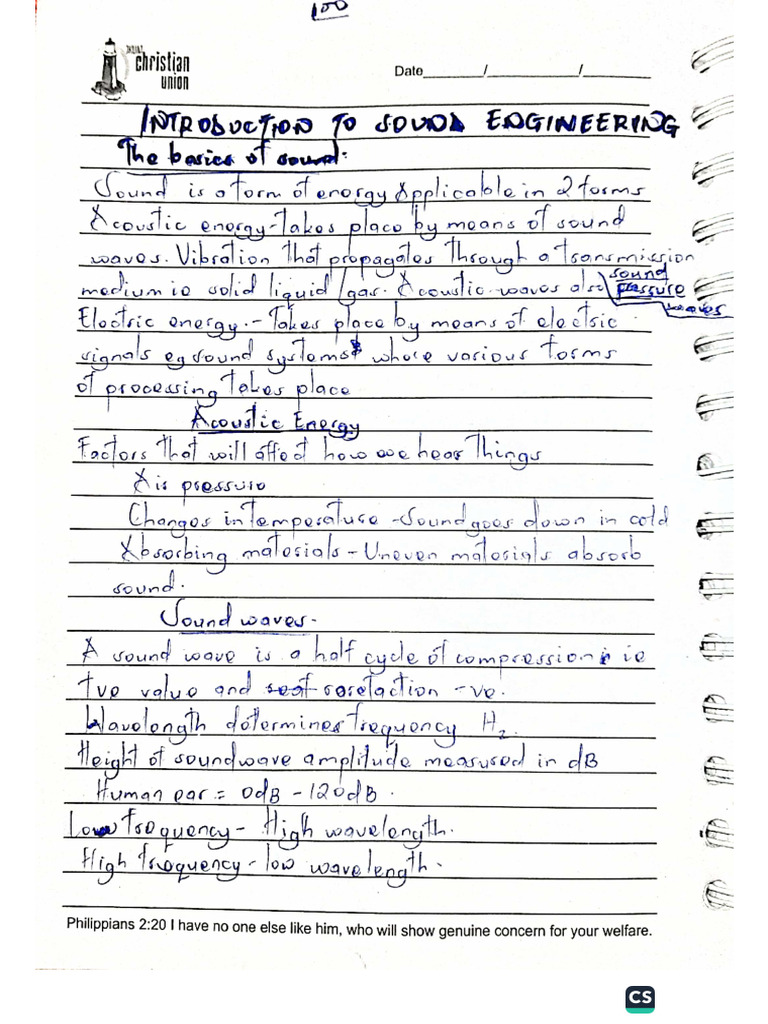 100
christian
union
Date______/____________/_________
INTRODUCTION TO SOUND ENGINEERING
The basics of sound:
Sound is a form of energy Applicable in 2 forms
Acoustic energy - Takes place by means of sound
waves. Vibration that propagates through a transmission
medium ie solid liquid /gas. Acoustic waves also sound pressure waves
Electric energy. - Takes place by means of electric
signals eg sound systems whose various forms
of processing takes place
Acoustic Energy
Factors that will affect how we hear Things
Air pressure
Changes in Temperature - Sound goes down in cold
Absorbing materials - Uneven materials absorb
sound.
Sound waves -
A sound wave is a half cycle of compression ie
tve value and rarefaction -ve.
Wavelength determines frequency Hz.
Height of soundwave amplitude measured in dB
Human ear = 0dB - 120dB.
Low frequency - High wavelength.
High frequency - low wavelength.
Philippians 2:20 I have no one else like him, who will show genuine concern for your welfare.
CS